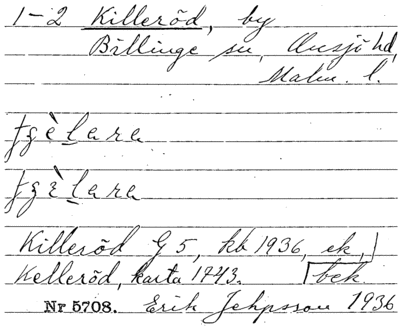 1-2 Killeröd, by
Billinge sn, Onsjö hd,
Malm. l.
Killeröd G 5, kb 1936, ek,
Kelleröd, karta 1743. bek
Nr 5708. Erik Jeppsson 1936